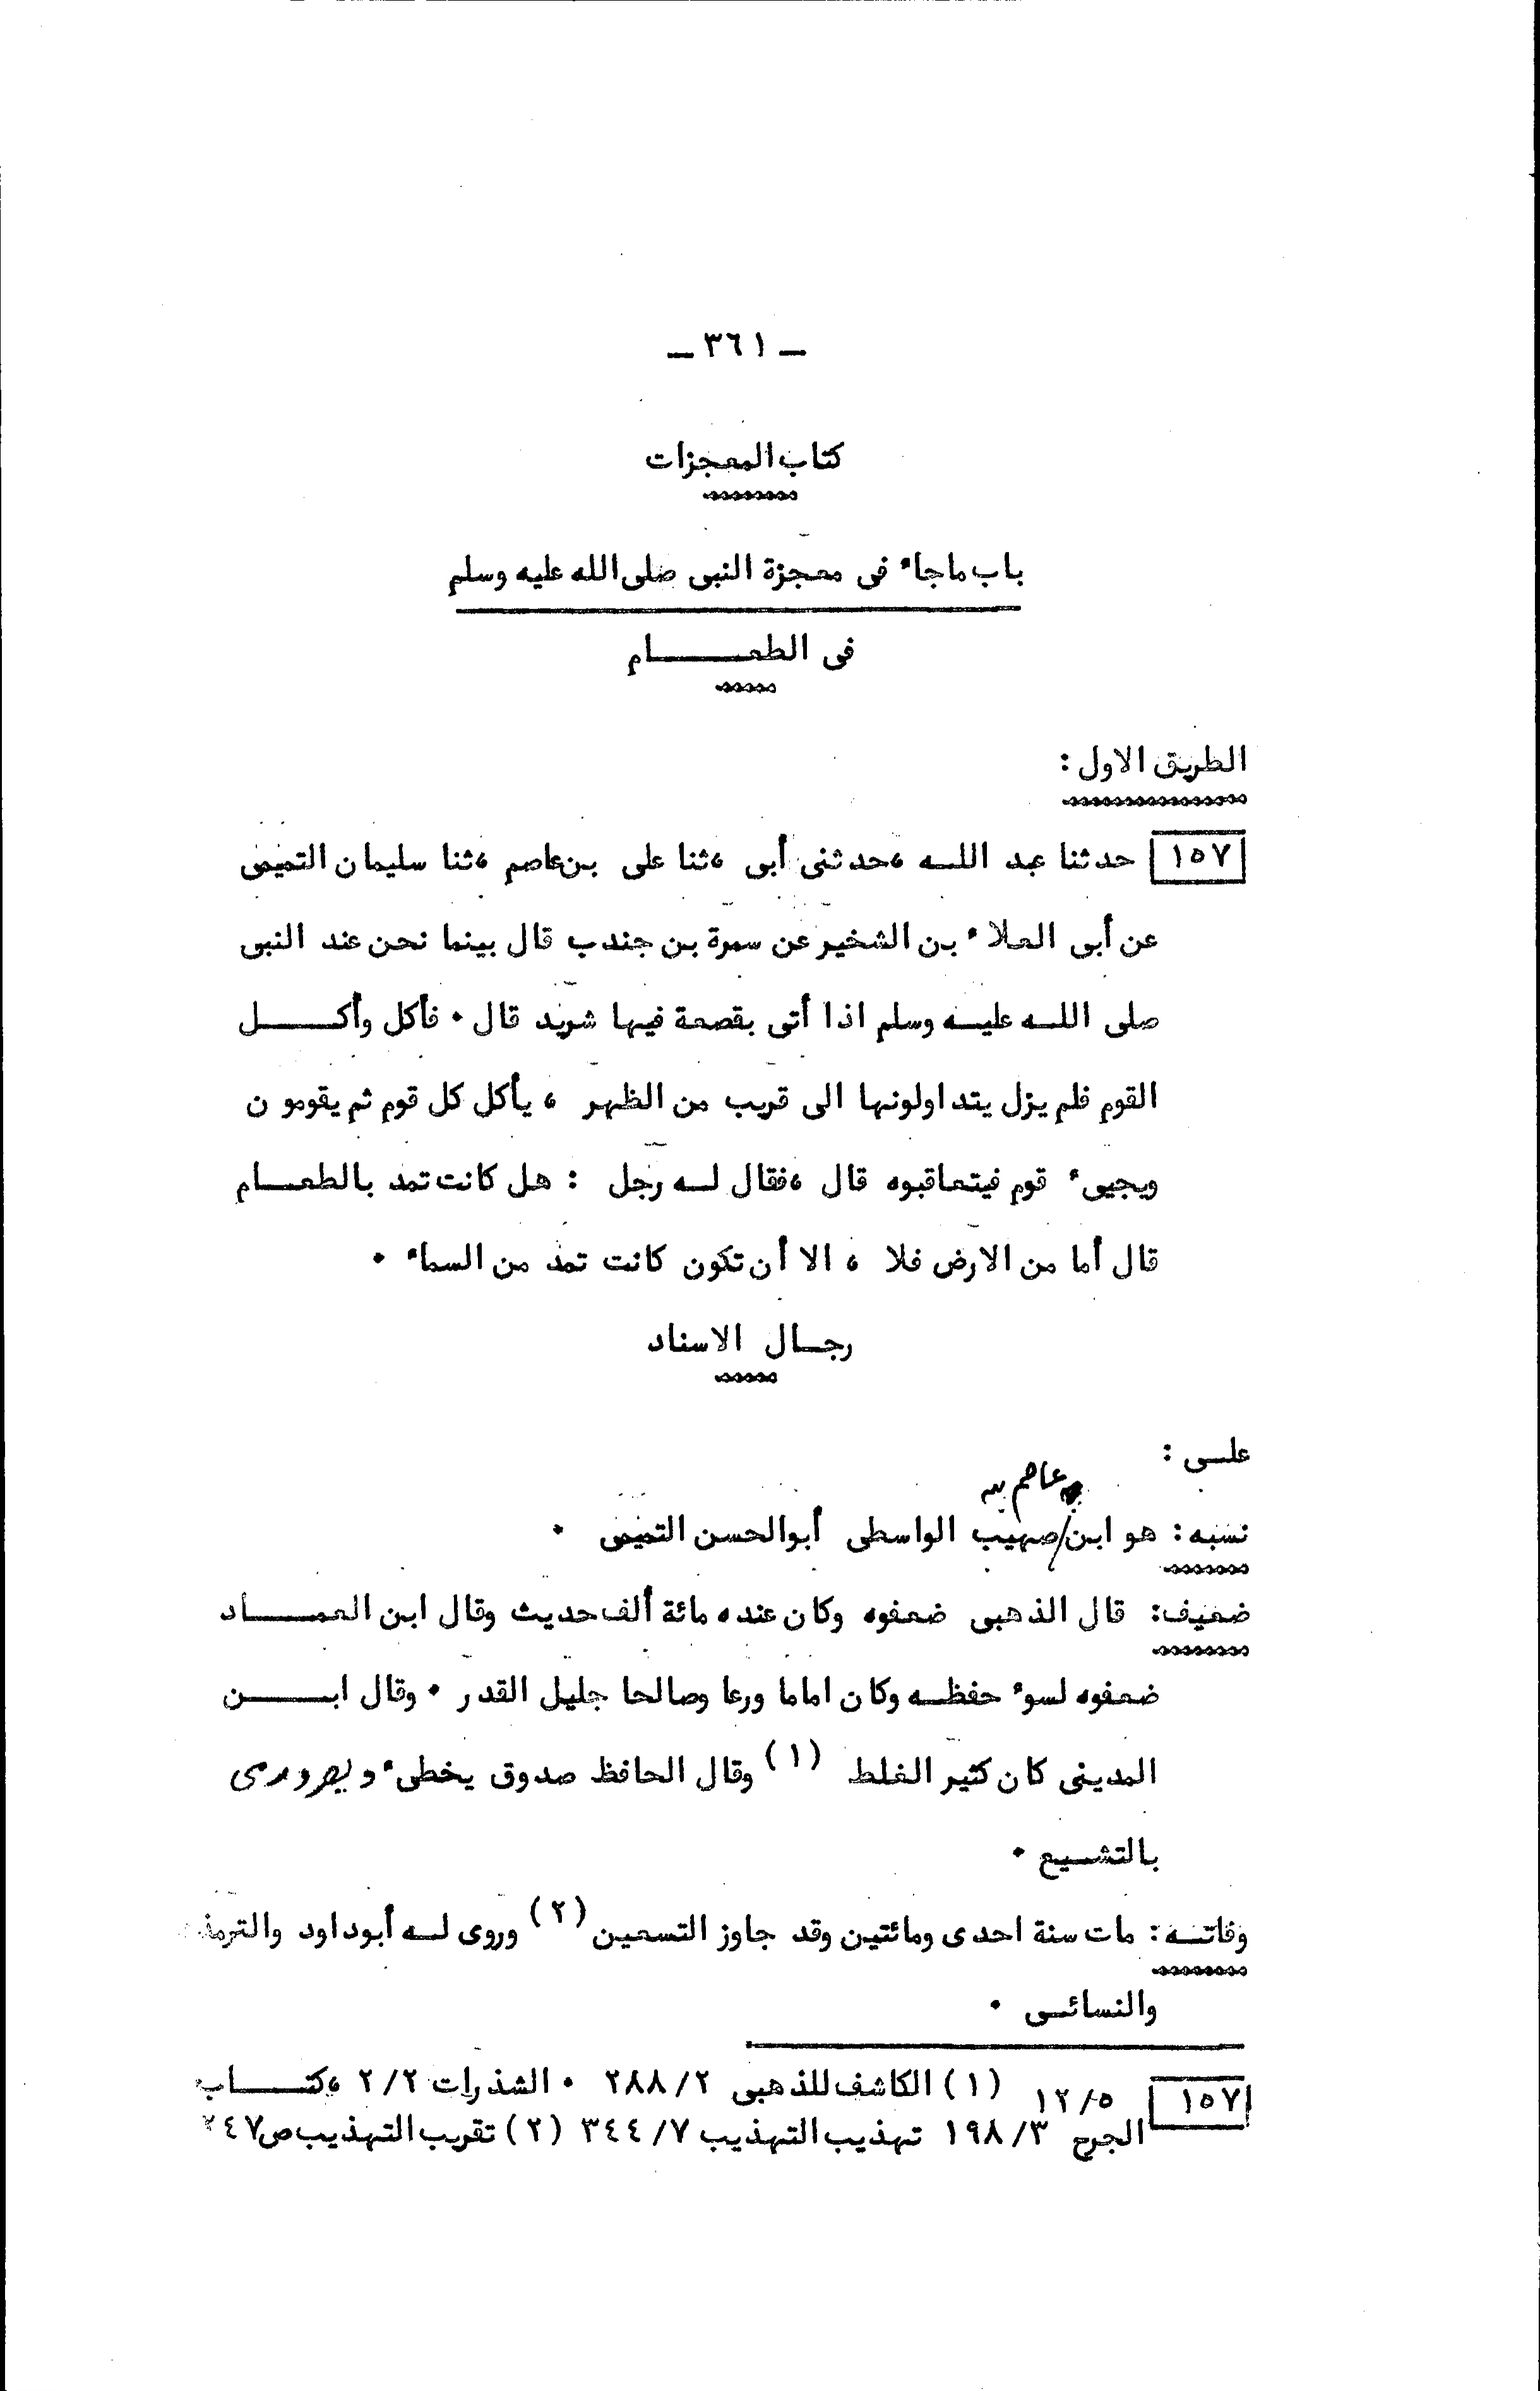 ـ ٣٦١ ـ
كتاب المعجزات
باب ماجاء فى معجزة النبى صلى الله عليه وسلم
فى الطعـــــام
الطريق الاول :
١٥٧ حدثنا عبد اللـه ،حدثنى أبى ،ثنا على بن عاصم ،ثنا سليمان التميمى
عن أبى العلاء بن الشخير عن سمرة بن جندب قال بينما نحن عند النبى
صلى اللـه عليـه وسلم اذا أتى بقصعة فيها ثريد قال ٠ فأكل وأكـــــل
القوم فلم يزل يتداولونها الى قريب من الظهر ، يأكل كل قوم ثم يقومون
ويجيىء قوم فيتعاقبوه قال ،فقال لـه رجل : هل كانت تمد بالطعــام
قال أما من الارض فلا ، الا أن تكون كانت تمد من السماء ٠
رجـال الاسناد
علـى :
عاصم بن
نسبه : هو ابن/صهيب الواسطى أبوالحسن التميمى ٠
ضعيف : قال الذهبى ضعفوه وكان عنده مائة ألف حديث وقال ابن العمــــاد
ضعفوه لسوء حفظـه وكان اماما ورعا وصالحا جليل القدر ٠ وقال ابـــــن
المدينى كان كثير الغلط (١) وقال الحافظ صدوق يخطىء و
بالتشـيع ٠
وفاتـه : مات سنة احدى ومائتين وقد جاوز التسعين (٢) وروى لـه أبوداود والترمذ
والنسائـى ٠
١٥٧ ١٢/٥ (١) الكاشف للذهبى ٢٨٨/٢ ٠ الشذرات ٢/٢ ،كتـــاب
الجرح ١٩٨/٣ تهذيب التهذيب ٣٤٤/٧ (٢) تقريب التهذيب ص٢٤٧